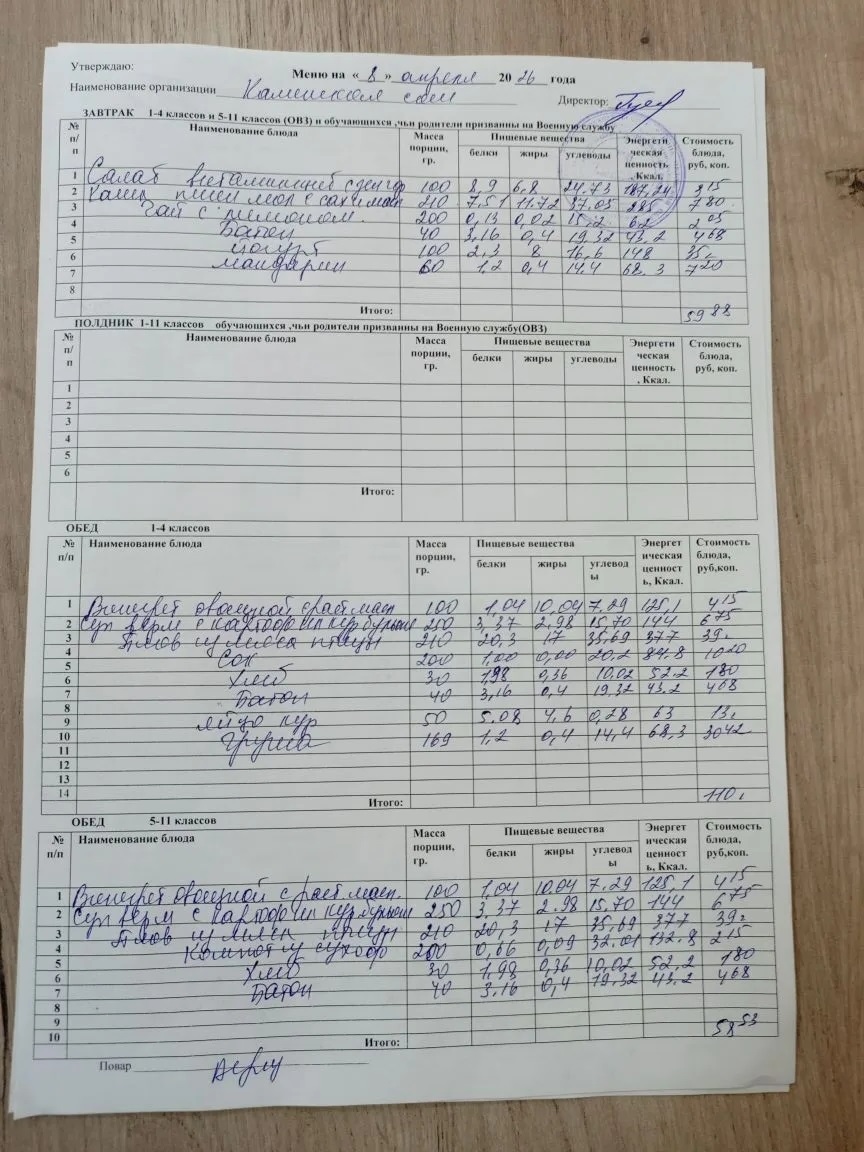 Утверждаю:
Меню на « 8 » апреля 2026 года
Наименование организации Каменская сош Директор:
ЗАВТРАК 1-4 классов и 5-11 классов (ОВЗ) и обучающихся ,чьи родители призванны на Военную службу
№ п/п Наименование блюда Масса порции, гр. Пищевые вещества Энергетическая ценность, Ккал. Стоимость блюда, руб, коп.
белки жиры углеводы
1 Салат витаминный 100 8,9 6,8 24,73 187,24 3 15
2 Каша пшен мол с сах и масл 210 7,51 11,72 37,05 285 7 80
3 Чай с лимоном 200 0,13 0,02 15,2 62 2 05
4 Батон 40 3,16 0,4 19,32 43,2 4 68
5 Йогурт 100 2,3 8 16,6 148 35,
6 мандарин 60 1,2 0,4 14,4 68,3 7 20
7
8
Итого: 59 88
ПОЛДНИК 1-11 классов обучающихся ,чьи родители призванны на Военную службу(ОВЗ)
№ п/п Наименование блюда Масса порции, гр. Пищевые вещества Энергетическая ценность, Ккал. Стоимость блюда, руб, коп.
белки жиры углеводы
1
2
3
4
5
6
Итого:
ОБЕД 1-4 классов
№ п/п Наименование блюда Масса порции, гр. Пищевые вещества Энергетическая ценность, Ккал. Стоимость блюда, руб,коп.
белки жиры углеводы
1 Винегрет овощной с раст масл 100 1,04 10,04 7,29 125,1 4 15
2 Суп верм с картоф и кур бульон 250 3,37 2,98 15,70 144 6 75
3 Плов из мяса птицы 210 20,3 17 35,69 377 39,
4 Сок 200 1,00 0,00 20,2 84,8 10 20
5 Хлеб 30 1,98 0,36 10,02 52,2 1 80
6 Батон 40 3,16 0,4 19,32 43,2 4 68
7
8 яйцо кур 50 5.08 4,6 0,28 63 13,
9 Груша 169 1,2 0,4 14,4 68,3 30 42
10
11
12
13
14
Итого: 110,
ОБЕД 5-11 классов
№ п/п Наименование блюда Масса порции, гр. Пищевые вещества Энергетическая ценность, Ккал. Стоимость блюда, руб,коп.
белки жиры углеводы
1 Винегрет овощной с раст масл. 100 1,04 10,04 7,29 125,1 4 15
2 Суп верм с картоф и кур бульон 250 3,37 2.98 15,70 144 6 75
3 Плов из мяса птицы 210 20,3 17 35,69 377 39,
4 Компот из сухоф 200 0,66 0,09 32.01 132.8 2 15
5 Хлеб 30 1,98 0,36 10,02 52,2 1 80
6 Батон 40 3.16 0,4 19,32 43,2 4 68
7
8
9
10
Итого: 58 53
Повар